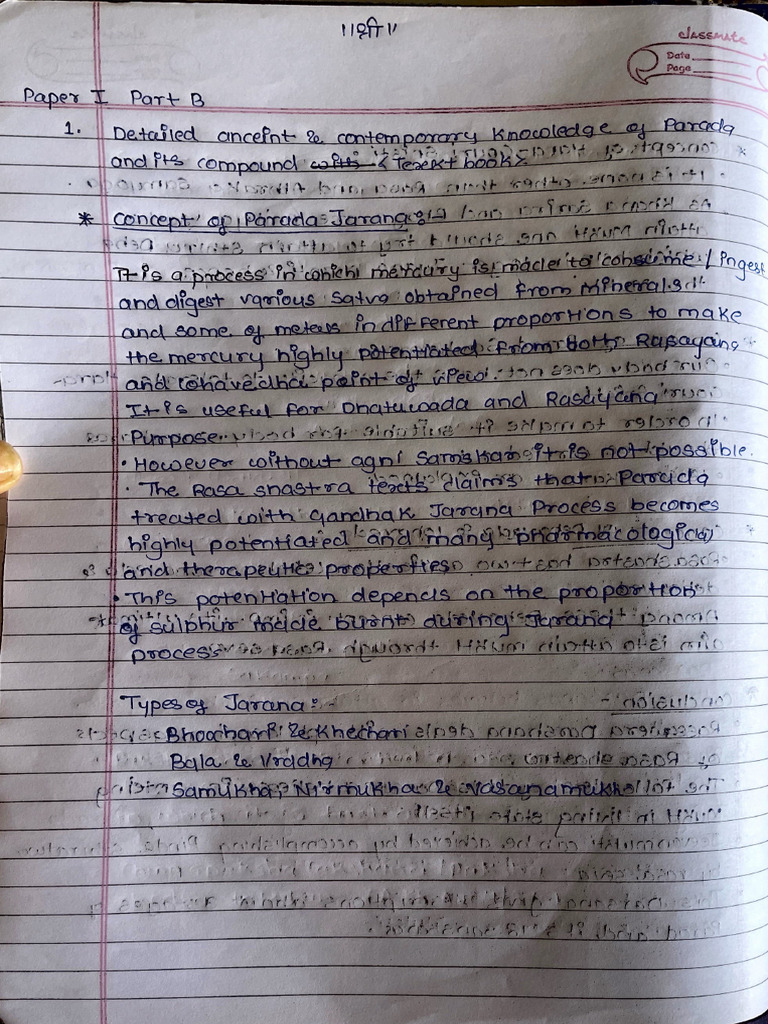 ॥श्री॥
classmate
Date
Page
Paper I Part B
1. Detailed anceint & contemporary Knowledge of Parada
and its compound & texext books
* Concept of Parada Jarana :-
It is a process in which mercury is made to consume / ingest
and digest various satva obtained from Minerals
and some of metals in different proportions to make
the mercury highly potentiated from both Rasayana
and point of view.
It is useful for Dhatuwada and Rasayana
Purpose.
• However without agni Samskar it is not possible.
• The Rasa shastra texts claims that Parada
treated with Gandhak Jarana Process becomes
highly potentiated and many pharmacological
and therapeutic properties
• This potentiation depends on the proportion
of sulphur made burnt during Jarana
process
Types of Jarana :-
Bhoochari & Khechari
Bala & Vradha
Samukha, Nirmukha & Vasanamukha